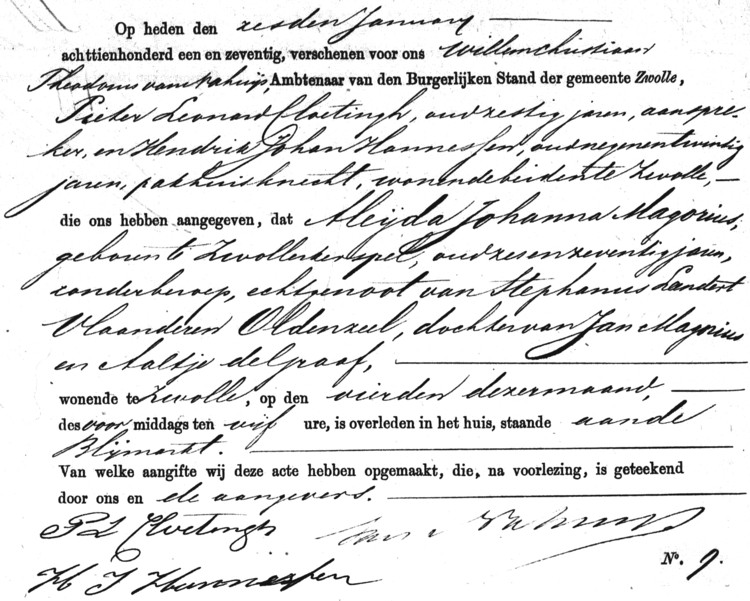 Op heden den zesden January
achttienhonderd een en zeventig, verschenen voor ons Willem Christiaan
Theodorus van Nahuys, Ambtenaar van den Burgerlijken Stand der gemeente Zwolle,
Pieter Leonard Cloetingh, oud zestig jaren, aanspre-
ker, en Hendrik Johan Hannessen, oud negenentwintig
jaren, pakhuisknecht, wonende beiden te Zwolle,
die ons hebben aangegeven, dat Aleijda Johanna Magorius,
geboren te Zwollerkerspel, oud zesenzeventig jaren,
zonder beroep, echtgenoot van Stephanus Lambert
Vlaanderen Oldenzeel, dochter van Jan Magorius
en Aaltje de Graaf,
wonende te Zwolle, op den vierden dezer maand,
des voor middags ten vijf ure, is overleden in het huis, staande aan de
Blijmarkt.
Van welke aangifte wij deze acte hebben opgemaakt, die, na voorlezing, is geteekend
door ons en de aangevers.
P L Cloetingh
H J Hannessen
No. 9.